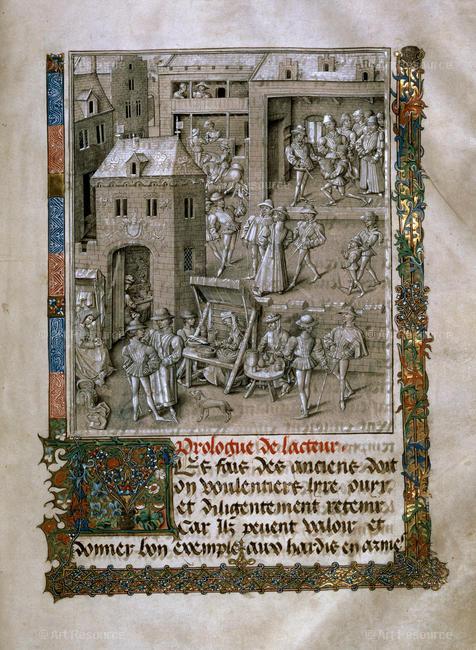 Prologue de lacteur
Les fais des anciens doit
on voulentiers lyre ouyr
et diligentement retenir
Car Ilz peuent valoir et
donner bon exemple aux hardis en arme
© Art Resource
© Art Resource